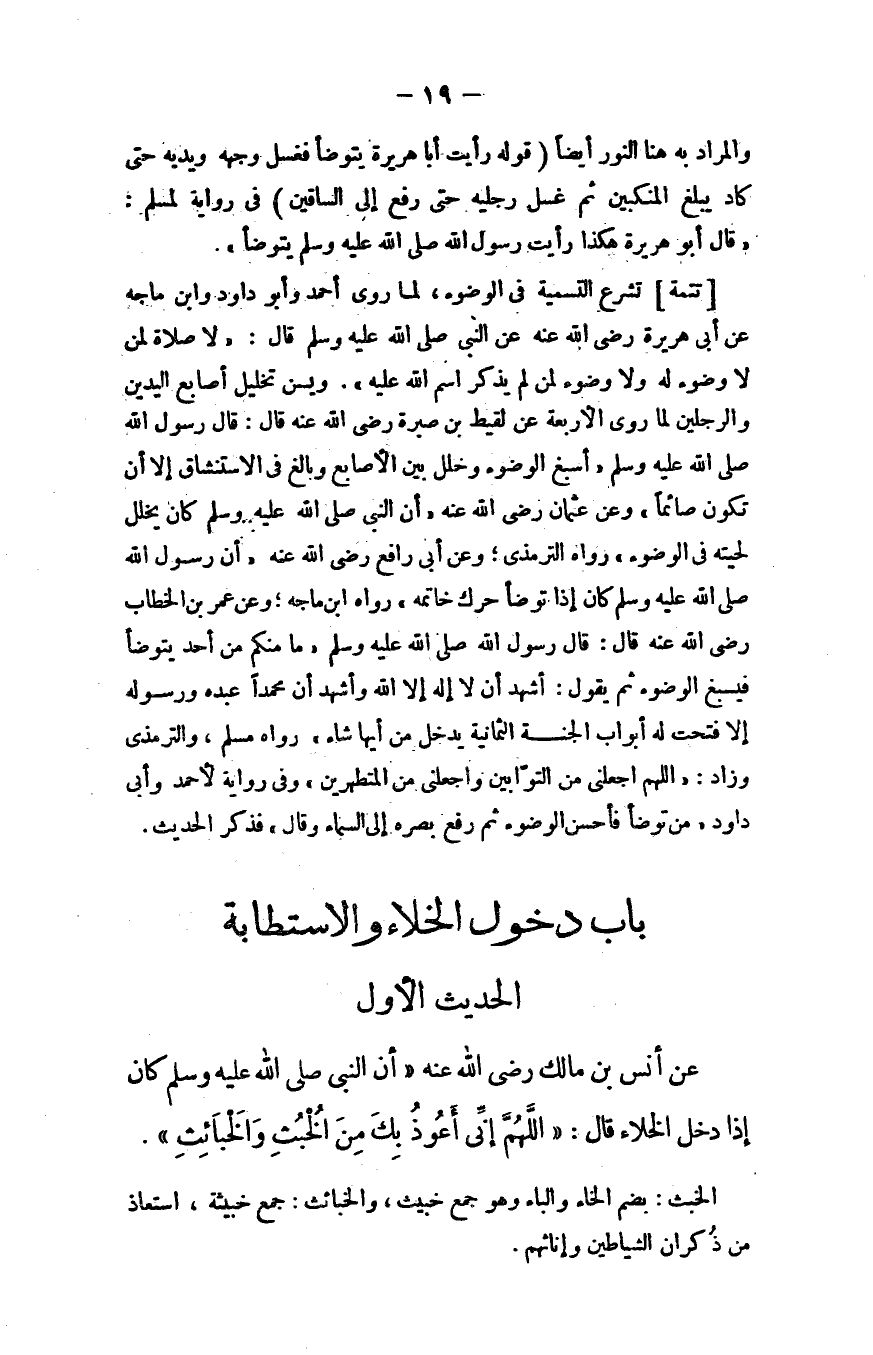 — ١٩ —
والمراد به هنا النور أيضاً ( قوله رأيت أبا هريرة يتوضأ فغسل وجهه ويديه حتى
كاد يبلغ المنكبين ثم غسل رجليه حتى رفع إلى الساقين ) فى رواية لمسلم :
« قال أبو هريرة هكذا رأيت رسول الله صلى الله عليه وسلم يتوضأ » .
[ تتمة ] تشرع التسمية فى الوضوء ، لما روى أحمد وأبو داود وابن ماجه
عن أبى هريرة رضى الله عنه عن النبى صلى الله عليه وسلم قال : « لا صلاة لمن
لا وضوء له ولا وضوء لمن لم يذكر اسم الله عليه » . ويسن تخليل أصابع اليدين
والرجلين لما روى الأربعة عن لقيط بن صبرة رضى الله عنه قال : قال رسول الله
صلى الله عليه وسلم « أسبغ الوضوء وخلل بين الأصابع وبالغ فى الاستنشاق إلا أن
تكون صائماً » وعن عثمان رضى الله عنه « أن النبى صلى الله عليه وسلم كان يخلل
لحيته فى الوضوء » رواه الترمذى ؛ وعن أبى رافع رضى الله عنه « أن رسول الله
صلى الله عليه وسلم كان إذا توضأ حرك خاتمه » رواه ابن ماجه ؛ وعن عمر بن الخطاب
رضى الله عنه قال : قال رسول الله صلى الله عليه وسلم « ما منكم من أحد يتوضأ
فيسبغ الوضوء ثم يقول : أشهد أن لا إله إلا الله وأشهد أن محمداً عبده ورسوله
إلا فتحت له أبواب الجنة الثمانية يدخل من أيها شاء » رواه مسلم ، والترمذى
وزاد : « اللهم اجعلنى من التوّابين واجعلنى من المتطهرين » وفى رواية لأحمد وأبى
داود « من توضأ فأحسن الوضوء ثم رفع بصره إلى السماء وقال » فذكر الحديث .
باب دخول الخلاء والاستطابة
الحديث الأول
عن أنس بن مالك رضى الله عنه « أن النبى صلى الله عليه وسلم كان
إذا دخل الخلاء قال : « اللَّهُمَّ إنِّى أَعُوذُ بِكَ مِنَ الْخُبُثِ وَالْخَبَائِثِ » .
الخبث : بضم الخاء والباء وهو جمع خبيث ، والخبائث : جمع خبيثة ، استعاذ
من ذُكران الشياطين وإناثهم .